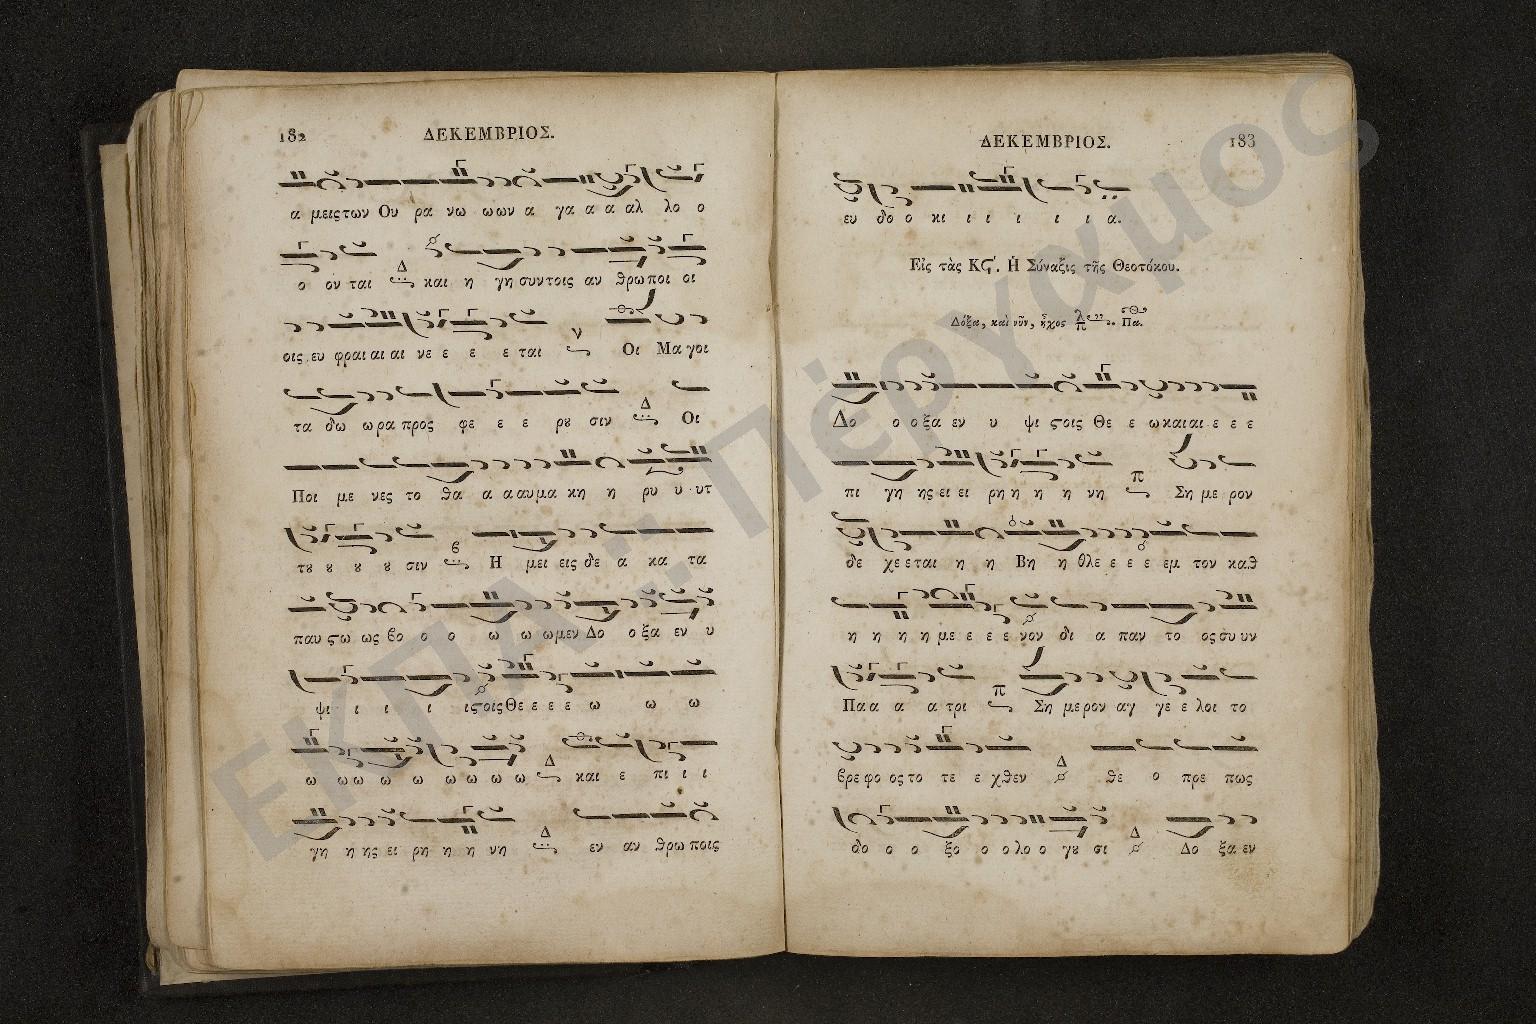 182 ΔΕΚΕΜΒΡΙΟΣ.
α μειςτων Ου ρα νω ωων α γα α α αλ λο ο
ο ον ται Δ και η γη συντοις αν θρωποι οι
οις ευ φραι αι αι νε ε ε ε ται ν Οι Μαγοι
τα δω ωρα προς φε ε ε ρȣ σιν Δ Οι
Ποι με νες το θα α α αυμα κη η ρυ υ υτ
τȣ ȣ ȣ ȣ σιν ϐ Η μει εις δε α κα τα
παυ ϛω ως ϐο ο ο ω ω ωμεν Δο ο ξα εν υ
ψι ι ι ι ιϛοις Θε ε ε ε ω ω ω
ω ωω ω ω ω ω ω ω Δ και ε πι ι ι
γη η ης ει ρη η η νη Δ εν αν θρωποις
ΔΕΚΕΜΒΡΙΟΣ. 183
ευ δο ο κι ι ι ι ι ι α.
Εἰς τὰς Κϛ΄. Ἡ Σύναξις τῆς Θεοτόκου.
Δόξα, καὶ νῦν, ἦχος Πα.
Δο ο ο ξα εν υ ψι ϛοις Θε ε ω και αι ε ε ε
πι γη ης ει ει ρη η η η νη π Ση με ρον
δε χε εται η η Βη η θλε ε ε ε εμ τον καθ
η η η η με ε ε ε νον δι α παν το ος συ υν
Πα α α α τρι π Ση με ρον αγ γε ε λοι το
ϐρε φο ος το τε ε χθεν Δ θε ο πρε πως
δο ο ο ξο ο ο λο ο γȣ σι Δ Δο ξα εν
ΕΚΠΑ :: Πέργαμος